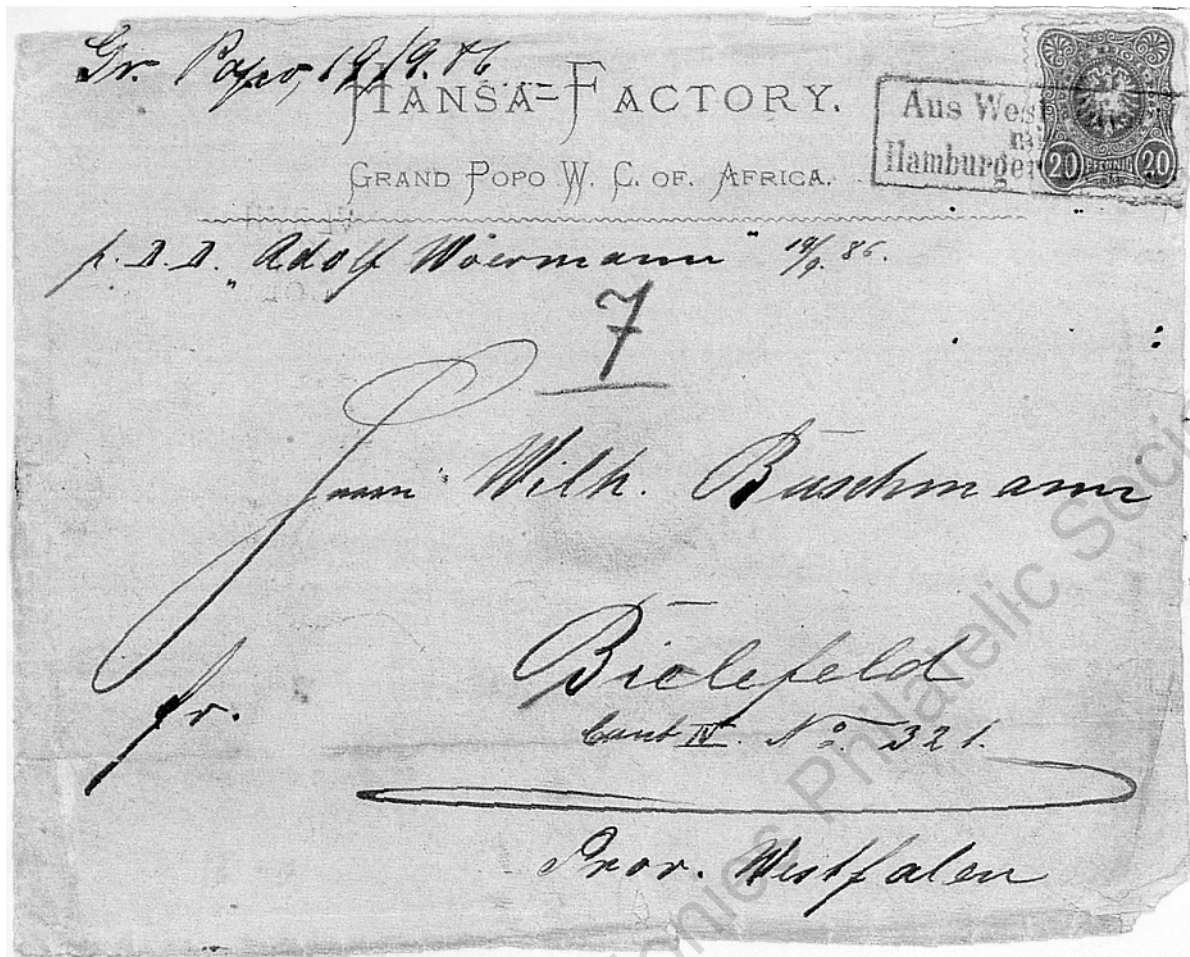 Gr. Popo, 19/9. 86
HANSA=FACTORY.
GRAND POPO W. C. OF. AFRICA.
Aus West
mi
Hamburger
REICH
20 PFENNIG 20
p. D. D. „Adolf Woermann" 19/9. 86.
7
Herrn Wilh. Buschmann
Bielefeld
fr.
Cant IV. No 321.
Prov. Westfalen
onies Philatelic Soci